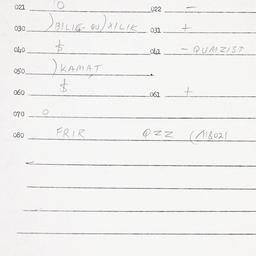 021 0 022 –
030 )BILIG-QU)XILIK 031 +
040 $ 041 – QUMZIST
050 )KAMAT
060 $ 061 +
070 0
080 FRIR QZZ